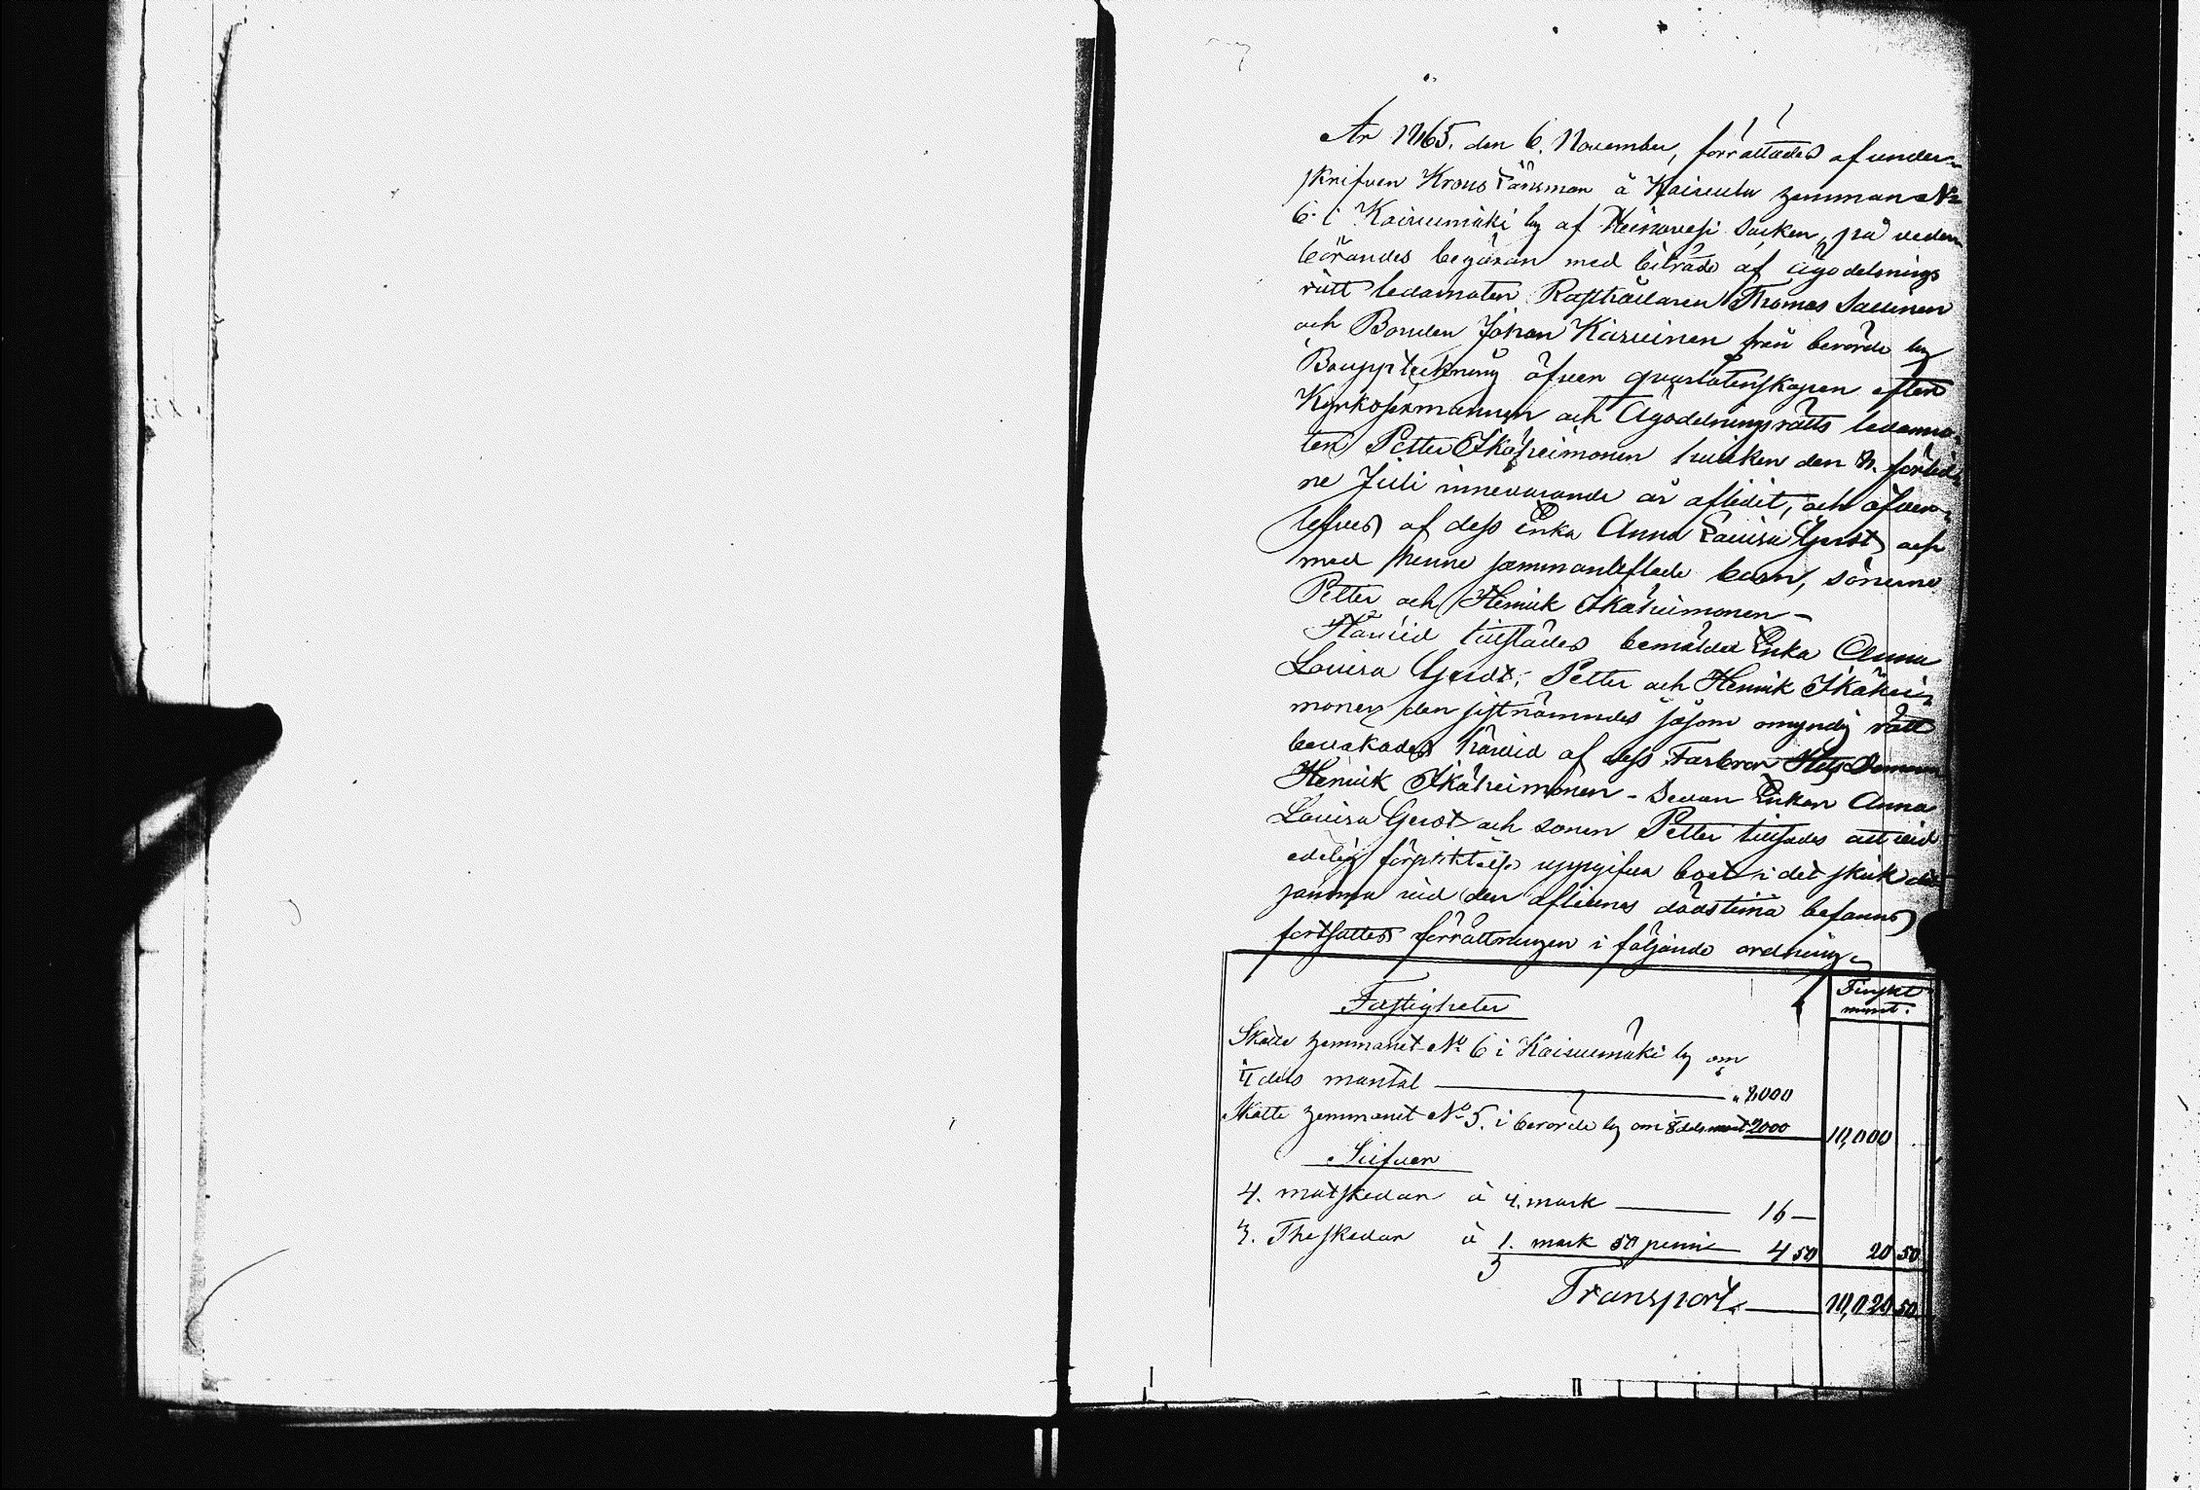 År 1865. den 6. November, förrättades af under-
skrifven Krono Länsman å Koivula hemman No
6. i Koivumäki by af Heinävesi Socken, på veder-
börandes begäran med biträde af Ägodelnings
rätt ledamoten Rusthållaren Thomas Sallinen
och Bonden Johan Karvinen från berörde by
Bouppteckning öfver qvarlåtenskapen efter
Kyrkosexmannen och Ägodelningsrätts ledamo-
ten Petter Ikäheimonen hvilken den förlid-
ne Juli innevarande år aflidit, och öfver-
lefves af dess Enka Anna Lovisa Gerdt och
med henne sammanaflade barn, sönerne
Petter och Henrik Ikäheimonen –
Härvid tillstädes bemälde Enka Anna
Lovisa Gerdt, Petter och Henrik Ikähei-
monen den sistnämndes såsom omyndig rätt
bevakades härvid af dess Farbror
Henrik Ikäheimonen – Sedan Enkan Anna
Lovisa Gerdt och sonen Petter tillsades att vid
edelig förpliktelse uppgifva boet i det skick det-
samma vid den aflidnes dödstima befanns,
fortsattes förrättningen i följande ordning.
Finskt
mynt.
Fastigheter
Skatte hemmanet No 6 i Koivumäki by om
1/4 dels mantal — 8,000
Skatte hemmanet No 5. i berörde by om 1/8 dels mant 2000 10,000
Silfver
4. matskedar à 4. mark — 16 —
3. Theskedar à 1. mark 50 penni — 4 50 20 50
Transport — 10,020 50